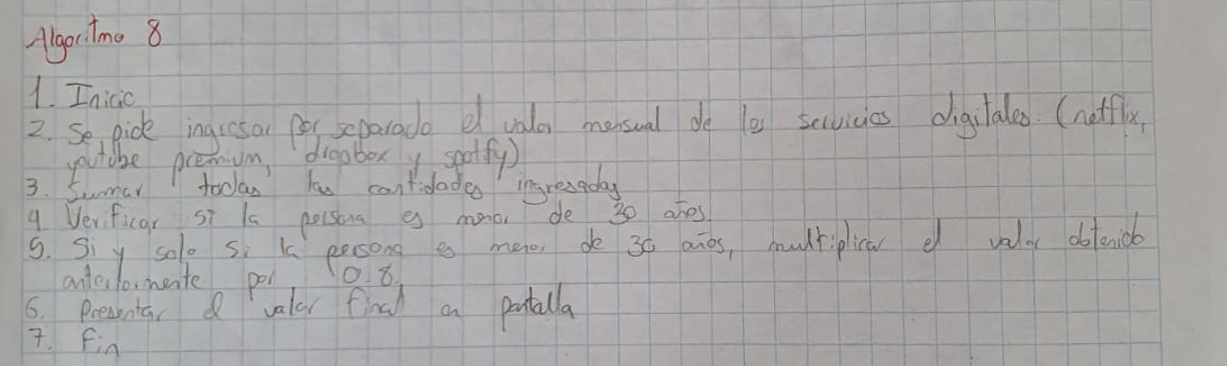 Algoritmo 8
1. Inicio
2. Se pide ingresar por separado el valor mensual de los servicios digitales. (netflix,
youtube premium, dropbox y spotify)
3. Sumar todas las cantidades ingresadas
4. Verificar si la persona es menor de 30 años.
5. Si y solo si la persona es menor de 30 años, multiplicar el valor obtenido
anteriormente por 0.8.
6. Presentar el valor final en pantalla
7. Fin